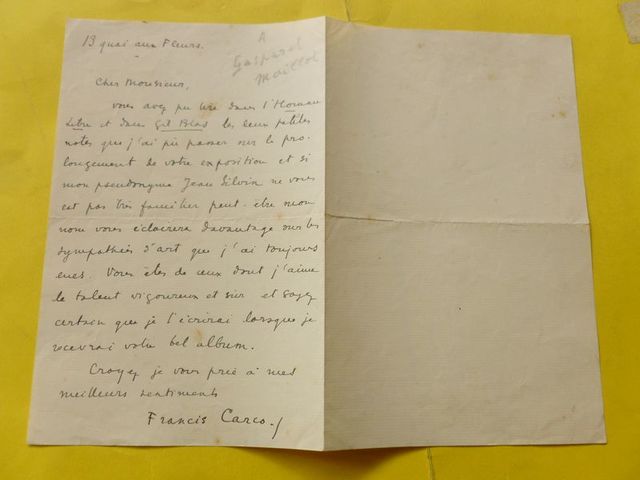 13 quai aux Fleurs.
A
Gaspard
Maillol
Cher Monsieur,
vous avez pu lire dans l'Homme
Libre et dans Gil Blas les deux petites
notes que j'ai pu passer sur le pro-
longement de votre exposition et si
mon pseudonyme Jean Silvin ne vous
est pas très familier peut-être mon
nom vous éclairera davantage sur les
sympathies d'art que j'ai toujours
eues. Vous êtes de ceux dont j'aime
le talent vigoureux et sûr et soyez
certain que je l'écrirai lorsque je
recevrai votre bel album.
Croyez je vous prie à mes
meilleurs sentiments
Francis Carco.